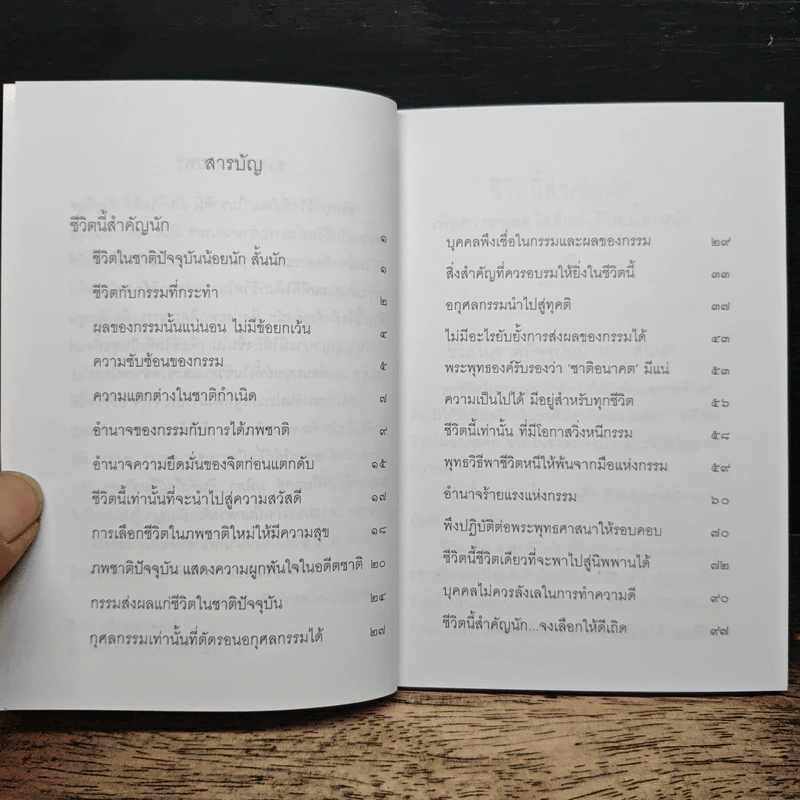 สารบัญ
ชีวิตนี้สำคัญนัก ๑
ชีวิตในชาติปัจจุบันน้อยนัก สั้นนัก ๑
ชีวิตกับกรรมที่กระทำ ๒
ผลของกรรมนั้นแน่นอน ไม่มีข้อยกเว้น ๔
ความซับซ้อนของกรรม ๕
ความแตกต่างในชาติกำเนิด ๗
อำนาจของกรรมกับการได้ภพชาติ ๙
อำนาจความยึดมั่นของจิตก่อนแตกดับ ๑๕
ชีวิตนี้เท่านั้นที่จะนำไปสู่ความสวัสดี ๑๗
การเลือกชีวิตในภพชาติใหม่ให้มีความสุข ๑๘
ภพชาติปัจจุบัน แสดงความผูกพันใจในอดีตชาติ ๒๐
กรรมส่งผลแก่ชีวิตในชาติปัจจุบัน ๒๔
กุศลกรรมเท่านั้นที่ตัดรอนอกุศลกรรมได้ ๒๗
บุคคลพึงเชื่อในกรรมและผลของกรรม ๒๙
สิ่งสำคัญที่ควรอบรมให้ยิ่งในชีวิตนี้ ๓๓
อกุศลกรรมนำไปสู่ทุคติ ๓๗
ไม่มีอะไรยับยั้งการส่งผลของกรรมได้ ๔๓
พระพุทธองค์รับรองว่า ‘ชาติอนาคต’ มีแน่ ๕๓
ความเป็นไปได้ มีอยู่สำหรับทุกชีวิต ๕๖
ชีวิตนี้เท่านั้น ที่มีโอกาสวิ่งหนีกรรม ๕๘
พุทธวิธีพาชีวิตหนีให้พ้นจากมือแห่งกรรม ๕๙
อำนาจร้ายแรงแห่งกรรม ๖๐
พึงปฏิบัติต่อพระพุทธศาสนาให้รอบคอบ ๗๐
ชีวิตนี้ชีวิตเดียวที่จะพาไปสู่นิพพานได้ ๗๒
บุคคลไม่ควรลังเลในการทำความดี ๙๐
ชีวิตนี้สำคัญนัก...จงเลือกให้ดีเถิด ๙๗